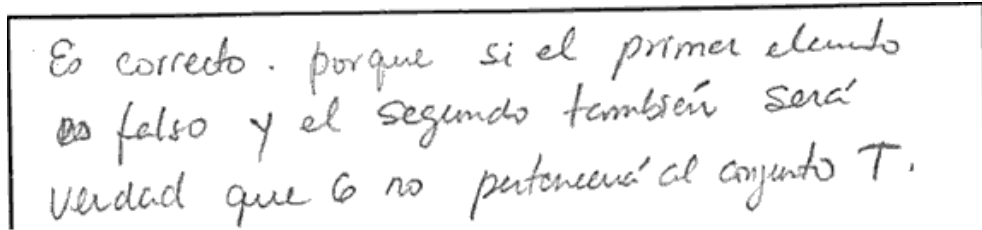 Es correcto. porque si el primer elemento
es falso y el segundo también será
verdad que 6 no pertenecerá al conjunto T.